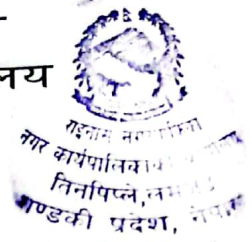 नय
राइनास नगरपालिका
नगर कार्यपालिकाको
तिनपिप्ले,
गण्डकी प्रदेश, नेपाल